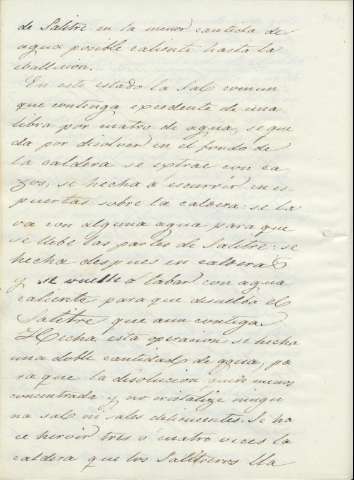 de Salitre en la menor cantidad de
agua posible caliente hasta la
ebullicion.
En este estado la Sal comun
que contenga excedente de una
libra por cuatro de agua, se que
da por disolver en el fondo de
la caldera se extrae con ca
zos, se hecha á escurrir en es
puertas sobre la caldera: se la
va con alguna agua para que
se lleve las partes de Salitre: se
hecha despues en caldera
y se vuelve á labar con agua
caliente para que disuelba el
Salitre que aun contiga.
Hecha esta operacion se hecha
una doble cantidad de agua, pa
ra que la disolucion quede menos
concentrada y no cristalize ningu
na sal ni sales delicuentes. Se ha
ce hervir tres ó cuatro veces la
caldera que los Salitreros lla